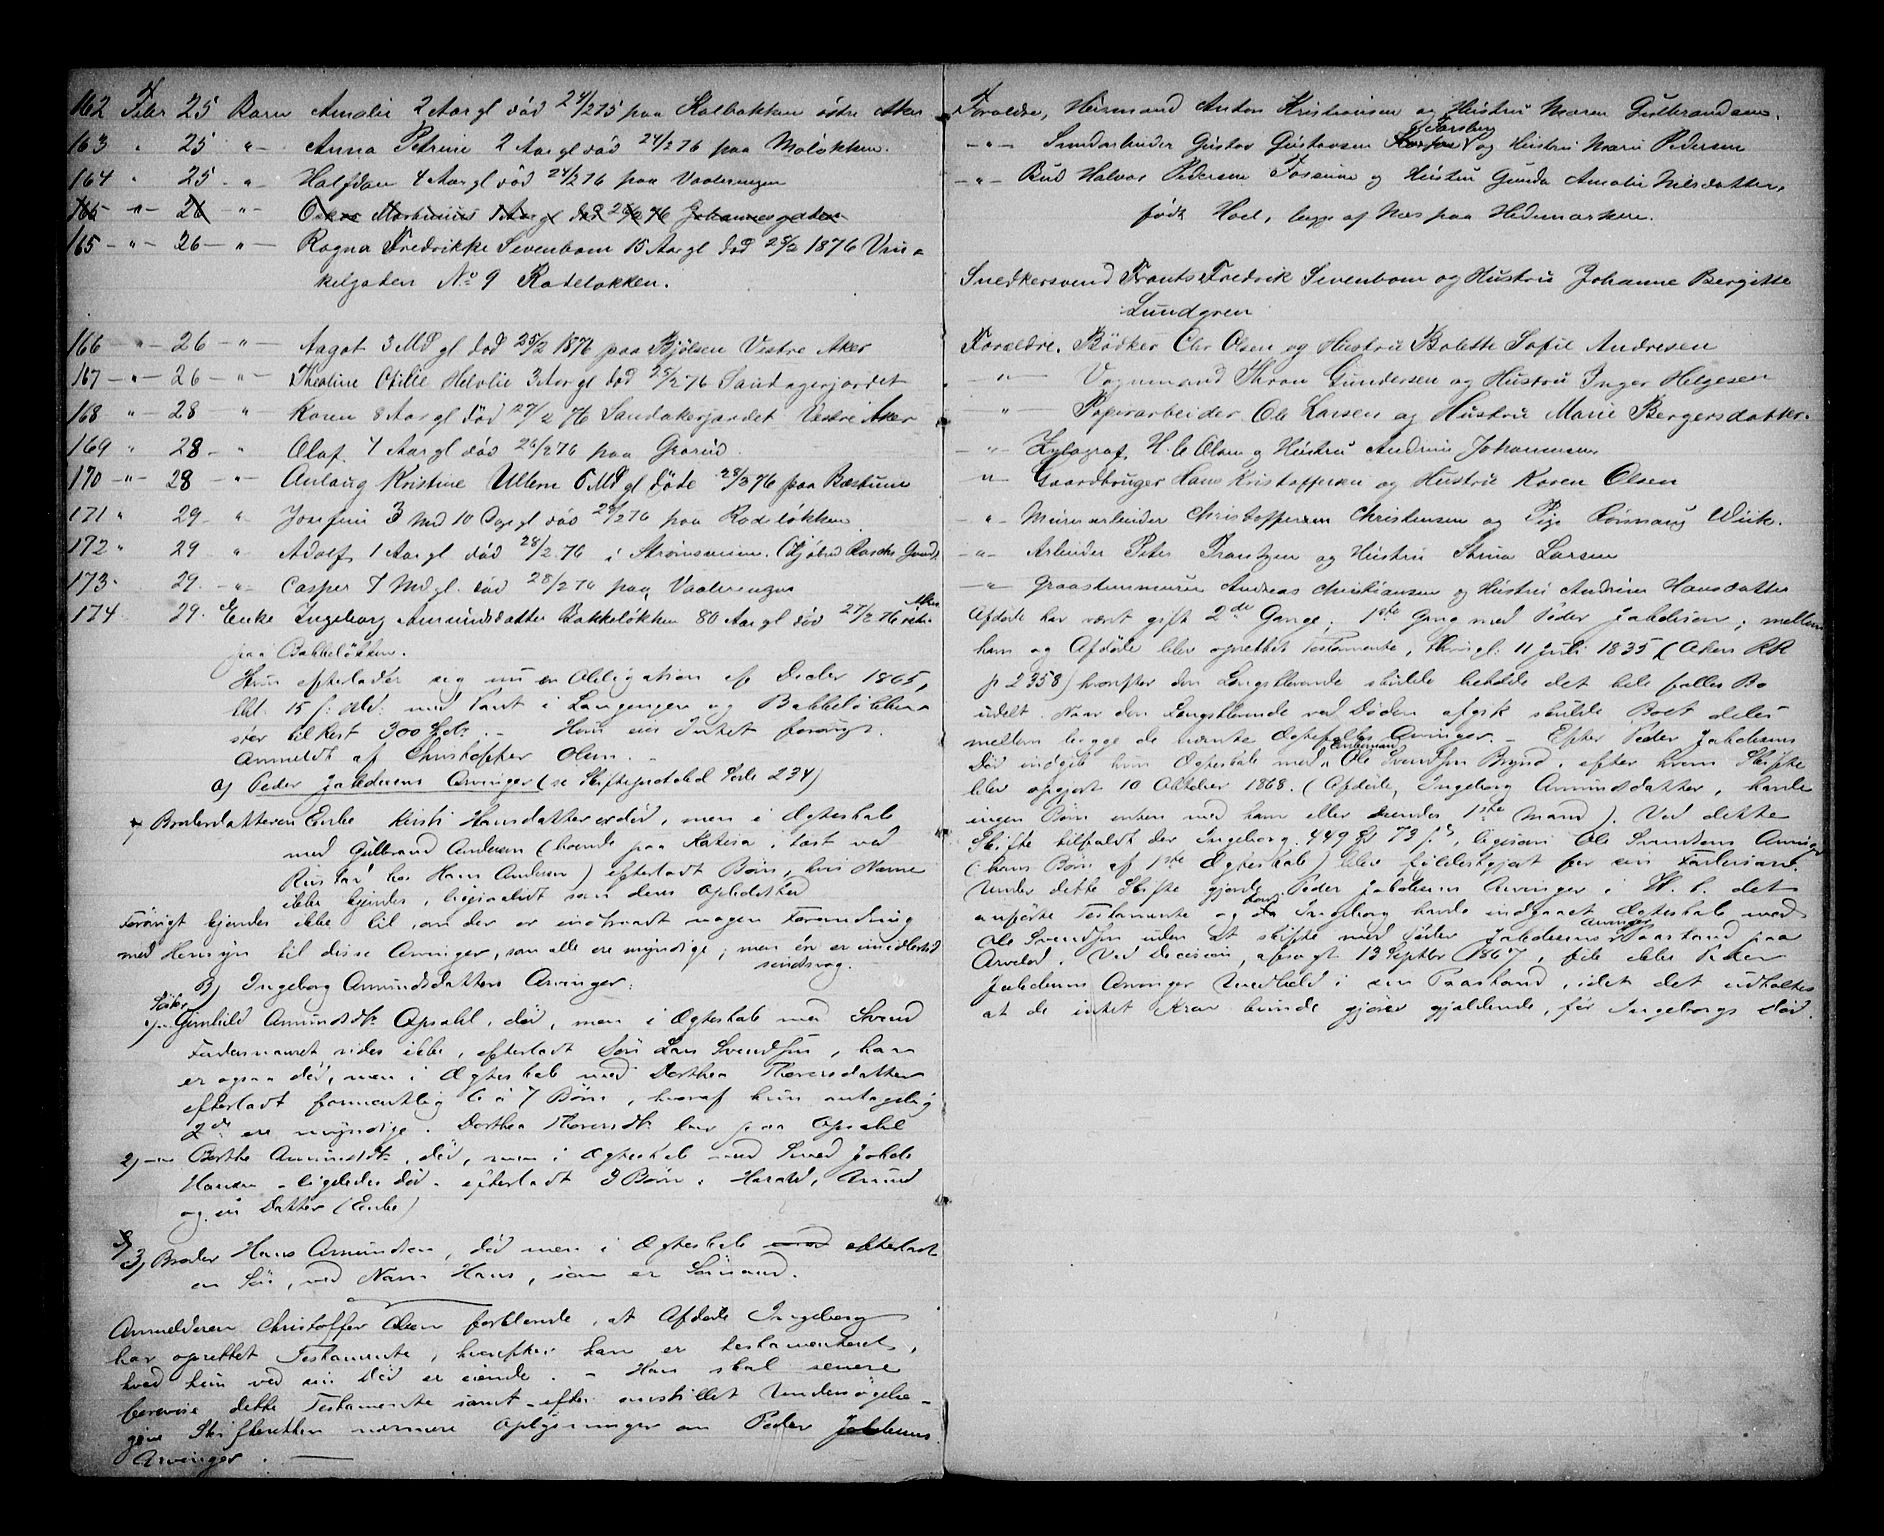 162 Febr 25 Barn Amalie 2 Aar gl død 24/2 75 paa Kalbakken østre Aker
163 " 25 " Anna Petrine 2 Aar gl død 24/2 76 paa Moløkken.
164 " 25 - " Halfdan 4 Aar gl død 24/2 76 paa Vaalerengen
166 " 26 " Oskar Martinius 1 Aar gl død 26/2 76 Johannesgaden
165 " 26 " Ragna Fredrikke Sevenbom 15 Aar gl død 25/2 1876 Vin-
kelgaden No 9 Rodeløkken.
166 " 26 " Aagot 3 Md gl død 25/2 1876 paa Bjølsen Vestre Aker
167 " 26 " Thealine Otilie Helvlie 3 Aar gl død 25/2 76 Sandagerjordet
168 " 28 " Karen 8 Aar gl død 27/2 76 Sandakerjordet Vestre Aker
169 " 28 " Olaf 4 Aar gl død 26/2 76 paa Grorud.
170 " 28 " Anlaug Kristine Ullern 6 Md gl døde 28/2 76 paa Bæstum
171 " 29 " Josefine 3 Md 10 Dage gl død 28/2 76 paa Rodeløkken
172 " 29 " Adolf 1 Aar gl død 28/2 76 i Strømsveien
173 29. " Casper 7 Md gl. død 28/2 76 paa Vaalerengen
174 29. Enke Ingeborg Amundsdatter Bakkeløkken 80 Aar gl død 27/2 76 Aker
paa Bakkeløkken.
Hun efterlader sig nu en Obligation af Decbr 1865,
med Pant i Langengen og Bakkeløkken
stor til Rest 300 Spdr. - Hun eier Intet forøvrigt.
Anmeldt af Christoffer Olsen.
a) Peder Jakobsens Arvinger (se Skifteprotokol Side 234)
1) Broderdatteren Enke Kirsti Hansdatter er død, men i Ægteskab
med Gulbrand Andersen (boende paa
Rustad hos Hans Andersen) efterladt Børn, hvis Navne
ikke kjendes, ligesaalidt som deres Opholdssted
Forøvrigt kjendes ikke til, om der er indtraadt nogen Forandring
med Hensyn til disse Arvinger, som alle ere myndige; men én er imidlertid
sindssvag.
B) Ingeborg Amundsdatters Arvinger:
Søster
1) Gunhild Amundsdtr Opsahl, død, men i Ægteskab med Svend
Fadersnavnet vides ikke, efterladt Søn Lars Svendsen, han
er ogsaa død, men i Ægteskab med Dorthea Thoresdatter
efterladt formentlig 6 a 7 Børn, hvoraf kun antagelig
2de ere myndige. Dorthea Thoresdtr bor paa Opsahl
2) Berthe Amundsdtr, død, men i Ægteskab med Smed Jakob
Hansen - ligeledes død - efterladt 3 Børn: Harald, Amund
og en Datter (Enke)
3) Broder Hans Amundsen, død men i Ægteskab med efterladt
en Søn, ved Navn Hans, som er Sømand.
Anmelderen Christoffer Olsen forklarede, at Afdøde Ingeborg
har oprettet Testamente, hvorefter han er testamenteret,
hvad hun ved sin Død er eiende. - Han skal senere
bevise dette Testamente samt efter anstillet Undersøgelse
give Skifteretten nærmere Oplysninger om Peder Jakobsens
Arvinger.
Forældre, Hermand Anton Kristiansen og Hustru Maren Gulbrandsen.
" Gustav Gustavsen Forsberg og Hustru Marie Pedersen
" Bud Halvor Pedersen Fossum og Hustru Gunda Amalie Nilsdatter,
født Hoel, begge af Næs paa Hedemarken.
Snedkersvend Frants Fredrik Sevenbom og Hustru Johanne Bergitte
Lundgren
Forældre. Bødker Chr Olsen og Hustru Bolette Sofie Andresen
" Vognmand Thron Gundersen og Hustru Inger Helgesen
" Papirarbeider Ole Larsen og Hustru Marie Bergersdatter.
" Xylograf H. C Olsen og Hustru Andrine Johannesen
" Gaardbruger Hans Kristoffersen og Hustru Karen Olsen
" Murerarbeider Christoffersen Christensen og Pige Rønnaug Wiik.
" Arbeider Peter Frantzen og Hustru Larsen
" Graastensmurer Andreas Christiansen og Hustru Andrine Hansdatter
Afdøde har været gift 2de Gange; 1ste Gang med Peder Jakobsen; mellem
ham og Afdøde blev oprettet Testamente, 11 Juli 1835 (Akers
p 2358) hvorefter den Længstlevende skulde beholde det hele fælles Bo
udelt. Naar den Længstlevende ved Døden afgik skulde Boet deles
mellem begge de nævnte Ægtefolks Arvinger. - Efter Peder Jakobsens
Død indgik hun Ægteskab med Enkemand Ole Svendsen Brynd, efter hvem Skifte
blev opgjort 10 Oktober 1868. (Afdøde, Ingeborg Amundsdatter, havde
ingen Børn enten med ham eller hendes 1ste Mand). Ved dette
Skifte tilfaldt der Ingeborg 449 Spd 73 s, ligesom Ole Svendsens Arvinger
(: hans Børn af 1ste Ægteskab) blev fyldestgjort for sin
Under dette Skifte gjorde Peder Jakobsens Arvinger i H. t. det
anførte Testamente og da Ingeborg havde indgaaet Ægteskab med
Ole Svendsen uden at skifte med Peder Jakobsens Arvinger Paastand paa
Arvelod. Ved Decision, afsagt 13 Septbr 1867, fik ikke Peder
Jakobsens Arvinger Medhold i sin Paastand, idet det udtaltes
at de intet Krav kunde gjøre gjældende, før Ingeborgs Død.